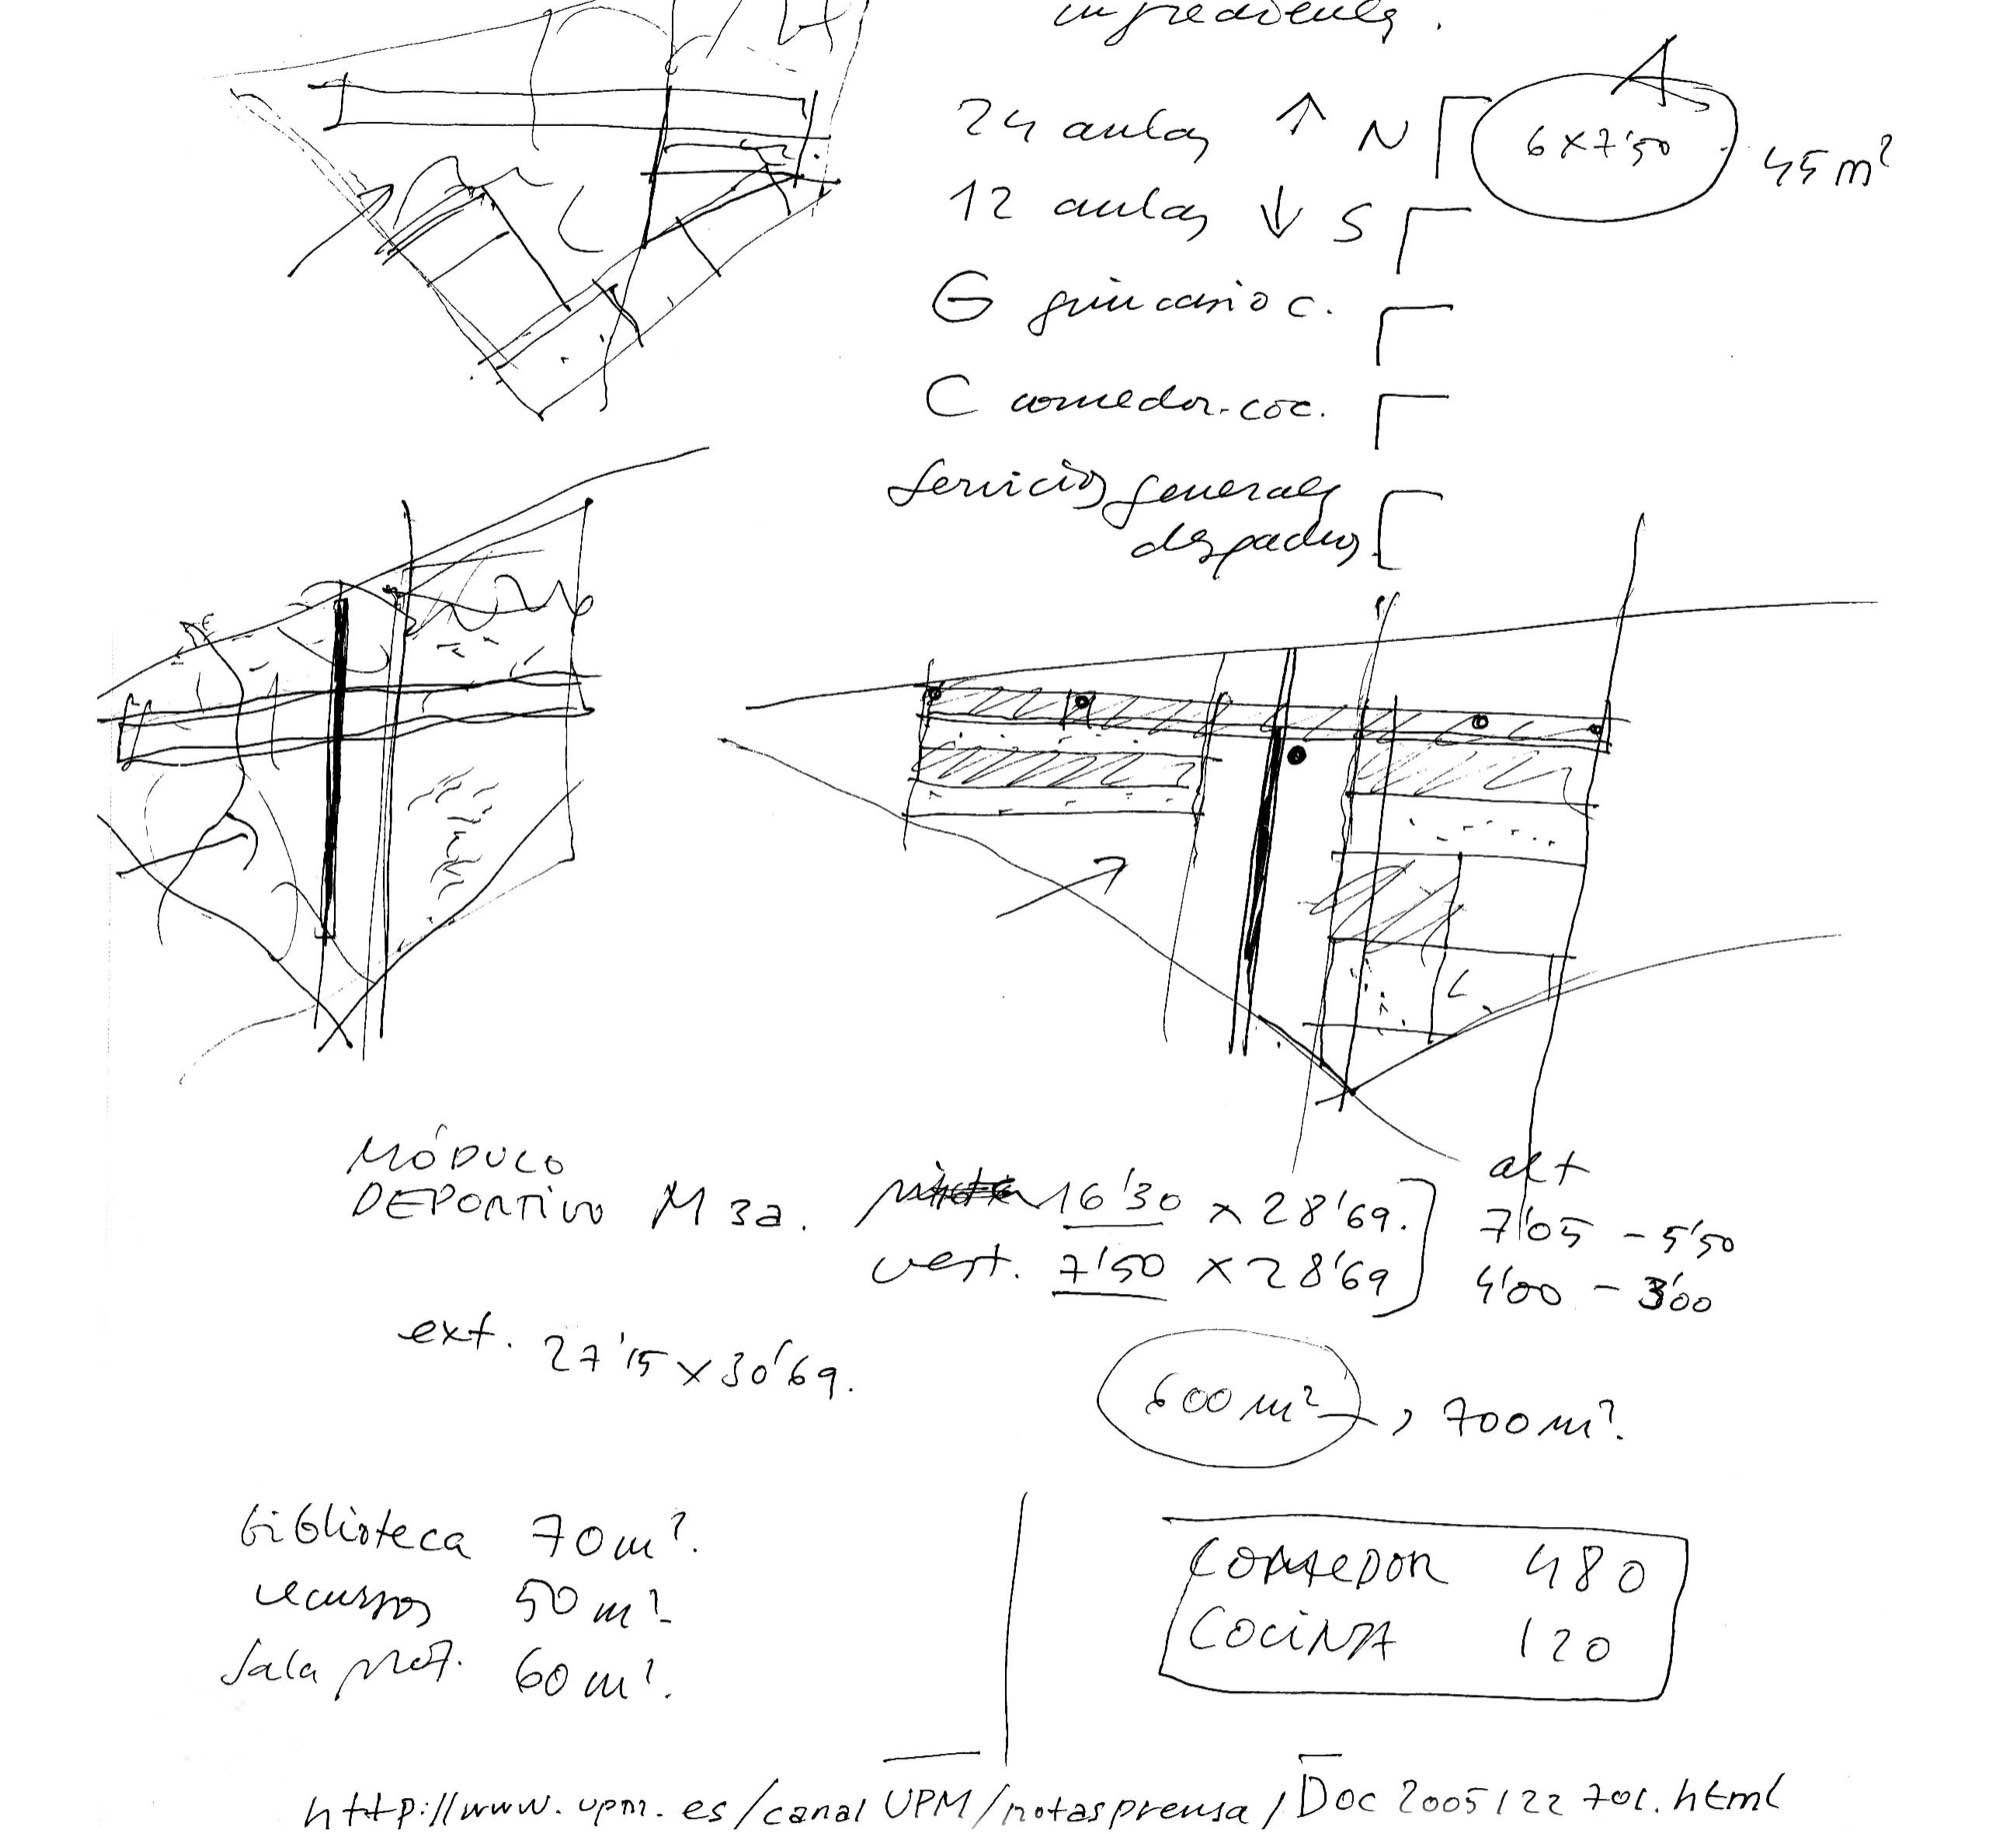 ingredientes.
A
24 aulas ↑ N 6x7'50 45 m²
12 aulas ↓ S
G gimnasio c.
C comedor-coc.
Servicios generales
despachos
MÓDULO
DEPORTIVO M 3a. pista 16'30 x 28'69. alt 7'05 - 5'50
vest. 7'50 x 28'69 4'00 - 3'00
ext. 27'15 x 30'69.
600 m², 700 m².
biblioteca 70 m².
recursos 50 m²
Sala prof. 60 m².
COMEDOR 480
COCINA 120
http://www.upm.es/canalUPM/notasprensa/Doc2005122701.html